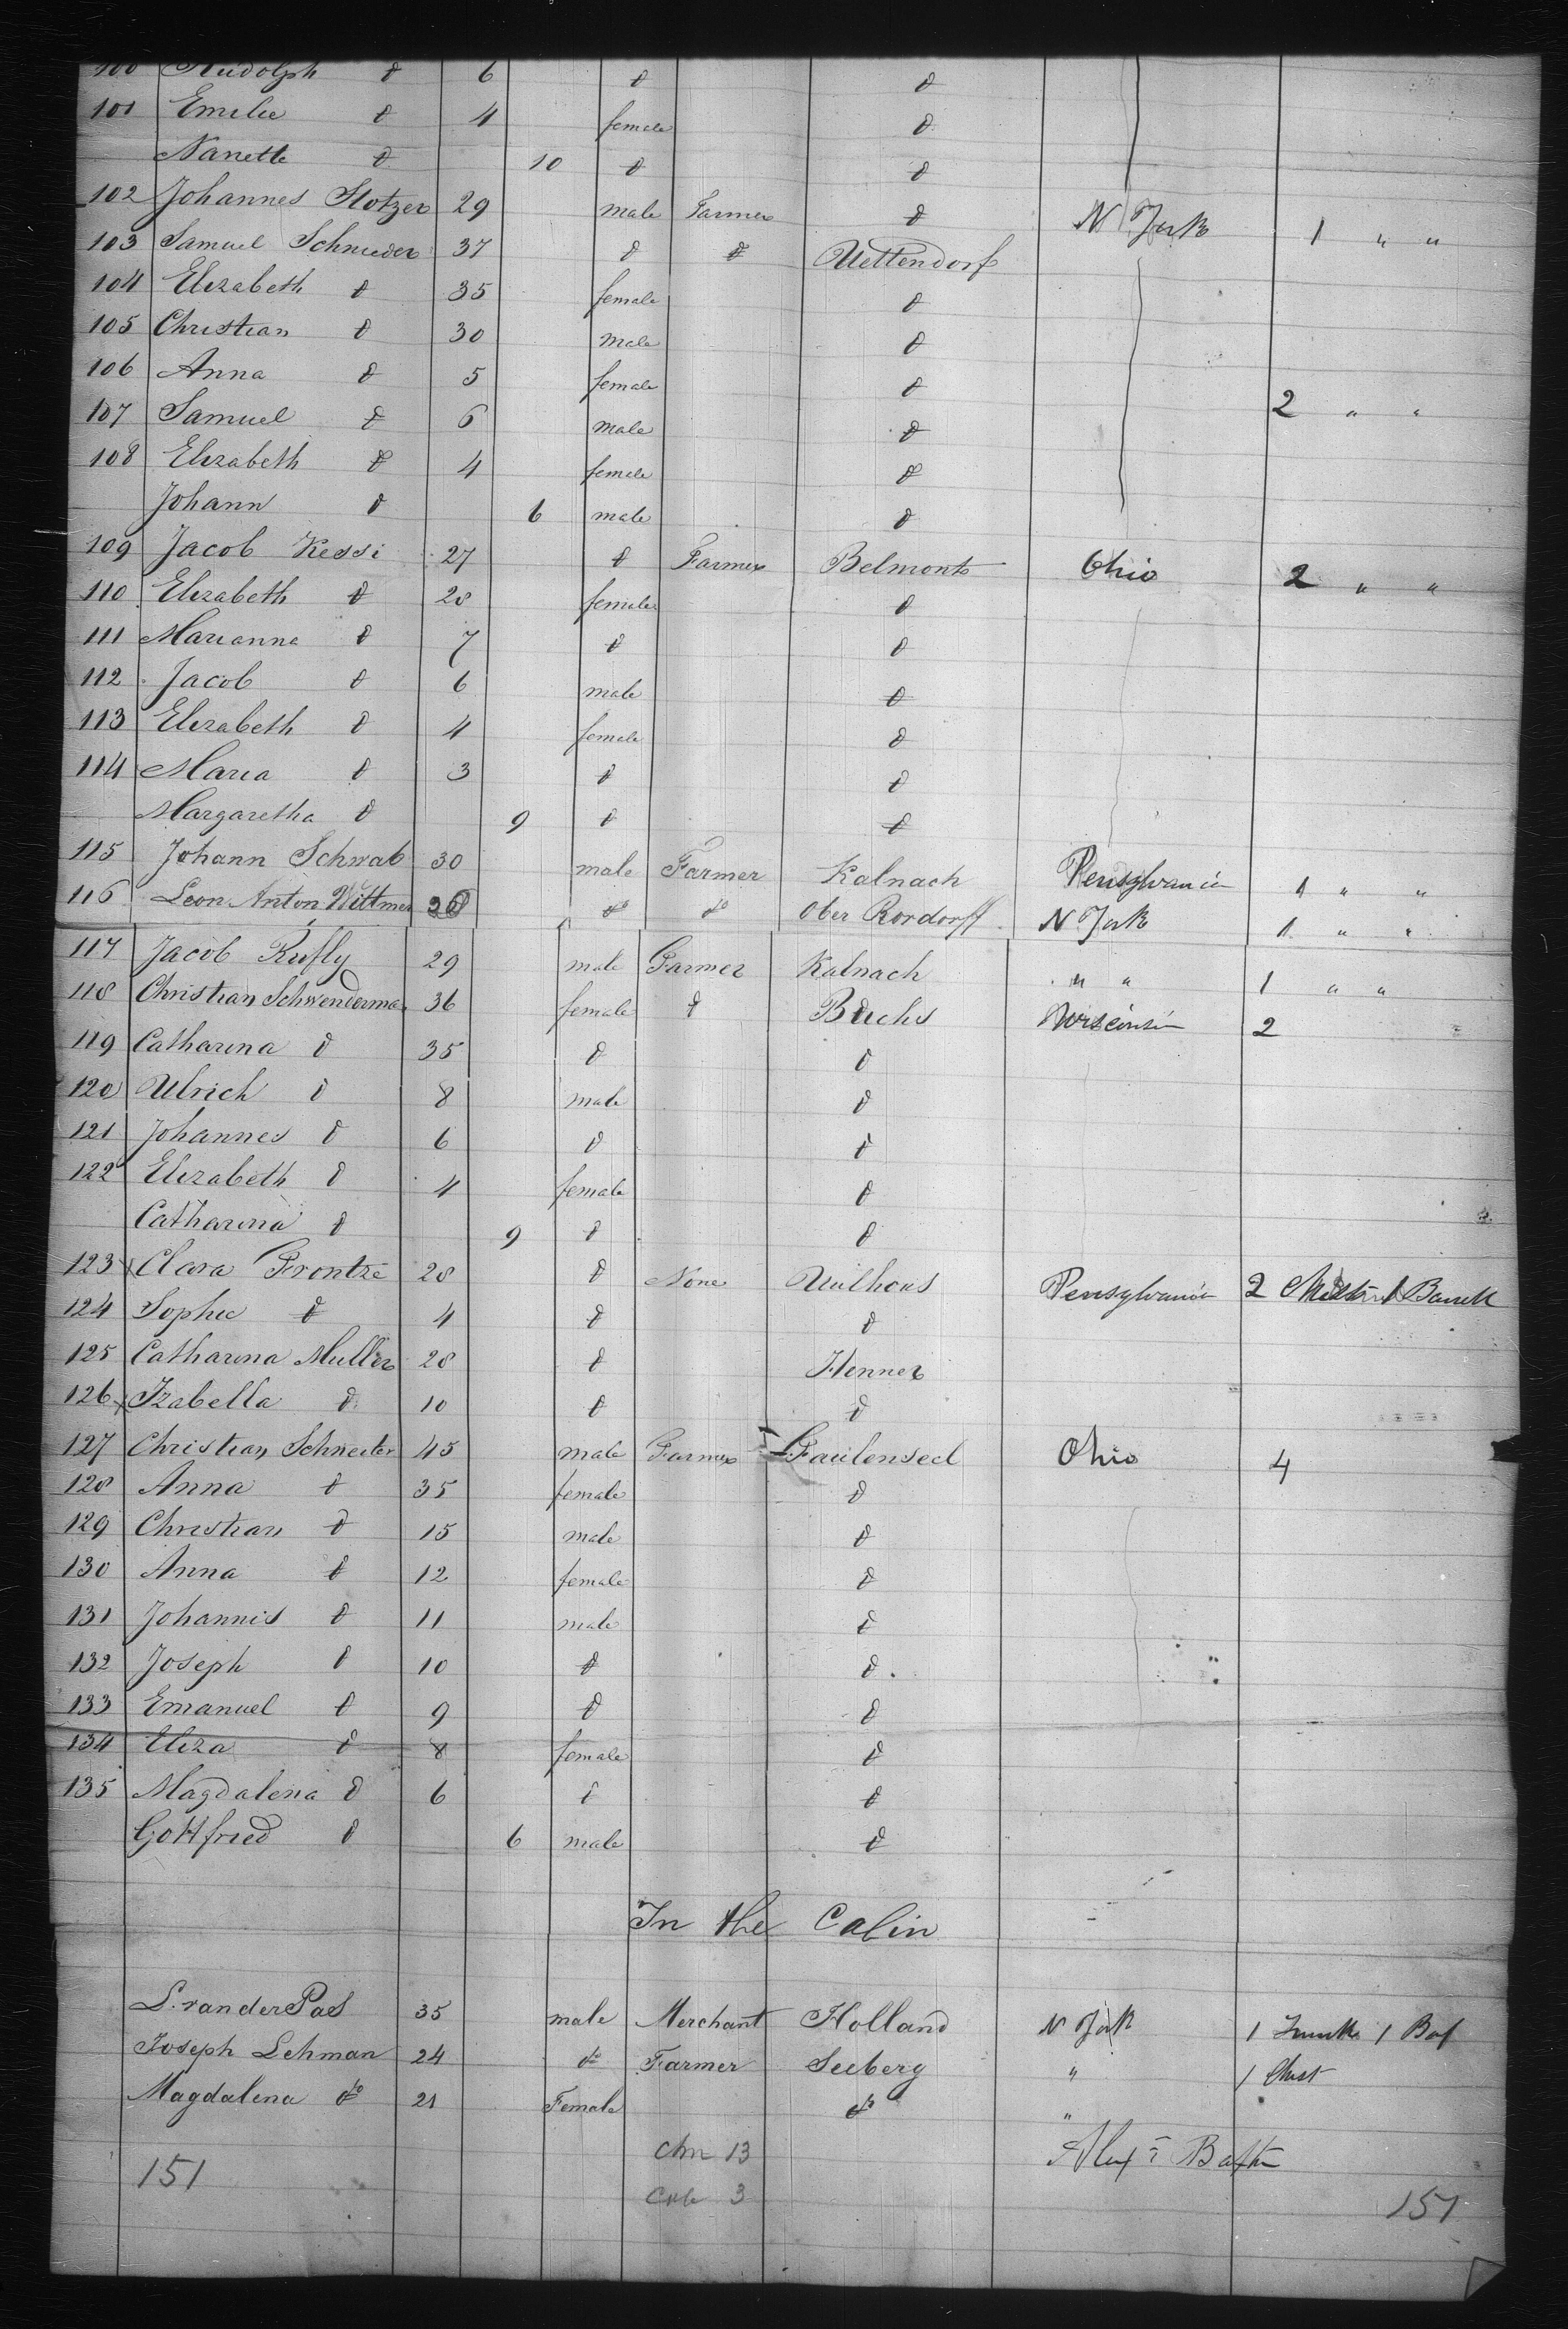 100 Rudolph do 6 do do
101 Emilie do 4 female do
Nanette do 10 do do
102 Johannes Stotzer 29 male Farmer do N York 1 " "
103 Samuel Schnieder 37 do do Uettendorf
104 Elizabeth do 35 female do
105 Christian do 30 male do
106 Anna do 5 female do
107 Samuel do 6 male do 2 " "
108 Elizabeth do 4 female do
Johann do 6 male do
109 Jacob Kessi 27 do Farmer Belmont Ohio 2 " "
110 Elizabeth do 28 female do
111 Marianna do 7 do do
112 Jacob do 6 male do
113 Elizabeth do 4 female do
114 Maria do 3 do do
Margaretha do 9 do do
115 Johann Schwab 30 male Farmer Kalnach Pensylvania 1 " "
116 Leon Anton Wittmer do do Ober Rordorff N York 1 " "
117 Jacob Kufly 29 male Farmer Kalnach " " 1 " "
118 Christian Schwenderman 36 female do Buchs Wisconsin 2
119 Catharina do 35 do do
120 Ulrich do 8 male do
121 Johannes do 6 do do
122 Elizabeth do 4 female do
Catharina do 9 do do
123 Clara 28 do None Pensylvania 2
124 Sophie do 4 do do
125 Catharina Muller 28 do Henner
126 Izabella do 10 do do
127 Christian Schneiter 45 male Farmer Faulensed Ohio 4
128 Anna do 35 female do
129 Christian do 15 male do
130 Anna do 12 female do
131 Johannis do 11 male do
132 Joseph do 10 do do
133 Emanuel do 9 do do
134 Eliza do 8 female do
135 Magdalena do 6 do do
Gottfried do 6 male do
In the Cabin
L. van der Pas 35 male Merchant Holland N York 1 Trunk 1 Bag
Joseph Lehman 24 do Farmer Seeberg " 1 Chest
Magdalena do 21 Female do "
13
151 3
151